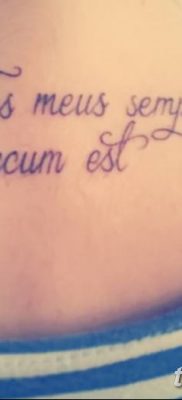 s meus semp
cum est